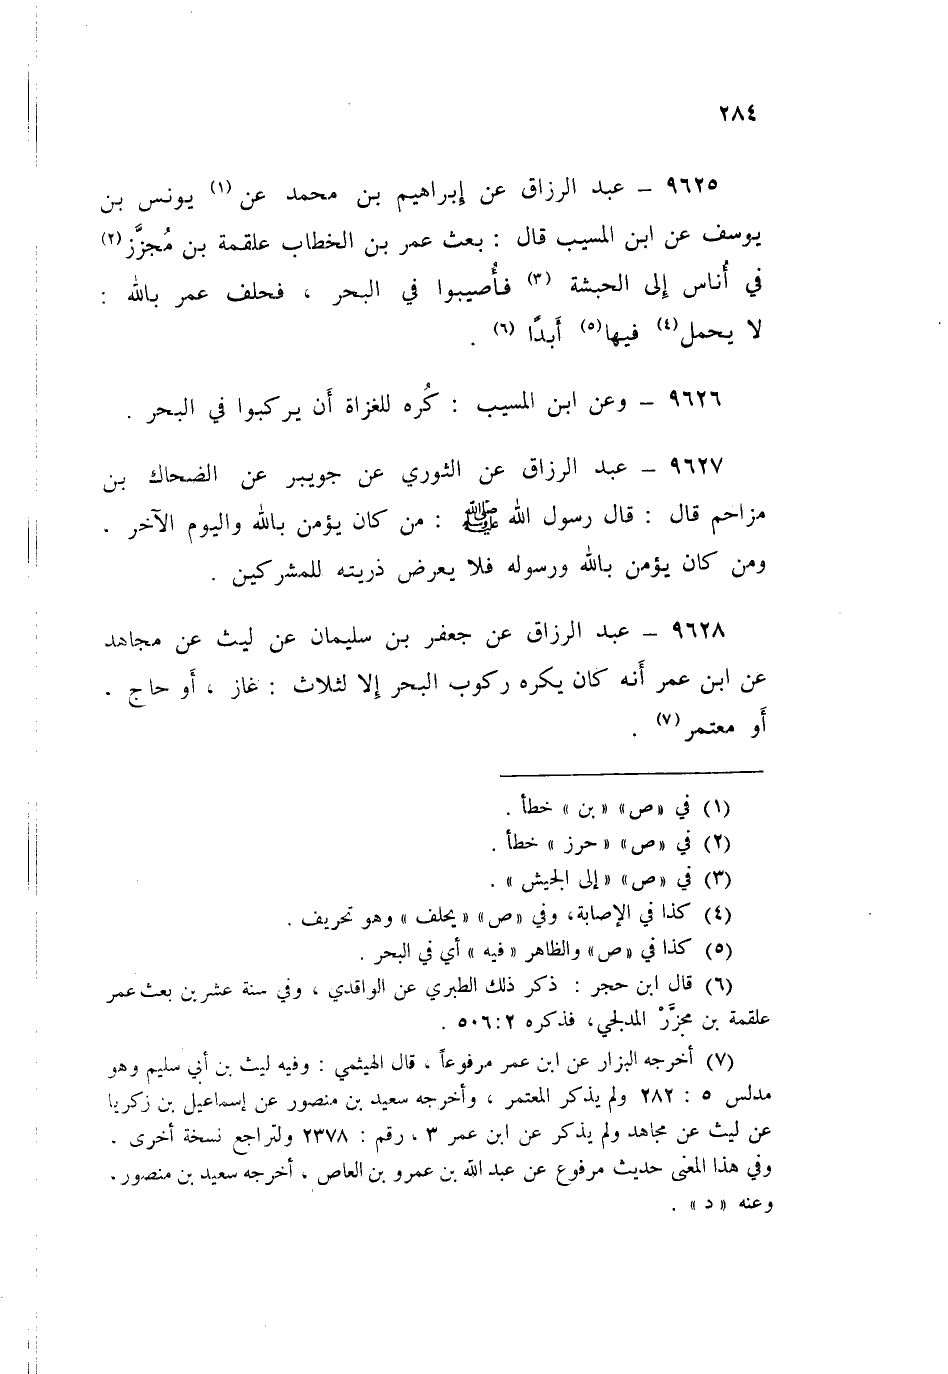 ٢٨٤
٩٦٢٥ – عبد الرزاق عن إبراهيم بن محمد عن (١) يونس بن
يوسف عن ابن المسيب قال : بعث عمر بن الخطاب علقمة بن مُجزَّز (٢)
في أُناس إلى الحبشة (٣) فأُصيبوا في البحر ، فحلف عمر بالله :
لا يحمل (٤) فيها (٥) أَبدًا (٦) .
٩٦٢٦ – وعن ابن المسيب : كُره للغزاة أَن يركبوا في البحر .
٩٦٢٧ – عبد الرزاق عن الثوري عن جويبر عن الضحاك بن
مزاحم قال : قال رسول الله ﷺ : من كان يؤمن بالله واليوم الآخر .
ومن كان يؤمن بالله ورسوله فلا يعرض ذريته للمشركين .
٩٦٢٨ – عبد الرزاق عن جعفر بن سليمان عن ليث عن مجاهد
عن ابن عمر أَنه كان يكره ركوب البحر إلا لثلاث : غاز ، أَو حاج .
أَو معتمر (٧) .
(١) في «ص» «بن» خطأ .
(٢) في «ص» «حرز» خطأ .
(٣) في «ص» «إلى الجيش» .
(٤) كذا في الإصابة، وفي «ص» «يحلف» وهو تحريف .
(٥) كذا في «ص» والظاهر «فيه» أي في البحر .
(٦) قال ابن حجر : ذكر ذلك الطبري عن الواقدي ، وفي سنة عشرين بعث عمر
علقمة بن مجزَّز المدلجي، فذكره ٢ : ٥٠٦ .
(٧) أخرجه البزار عن ابن عمر مرفوعاً ، قال الهيثمي : وفيه ليث بن أبي سليم وهو
مدلس ٥ : ٢٨٢ ولم يذكر المعتمر ، وأخرجه سعيد بن منصور عن إسماعيل بن زكريا
عن ليث عن مجاهد ولم يذكر عن ابن عمر ٣ ، رقم : ٢٣٧٨ ولتراجع نسخة أخرى .
وفي هذا المعنى حديث مرفوع عن عبد الله بن عمرو بن العاص ، أخرجه سعيد بن منصور.
وعنه «د» .